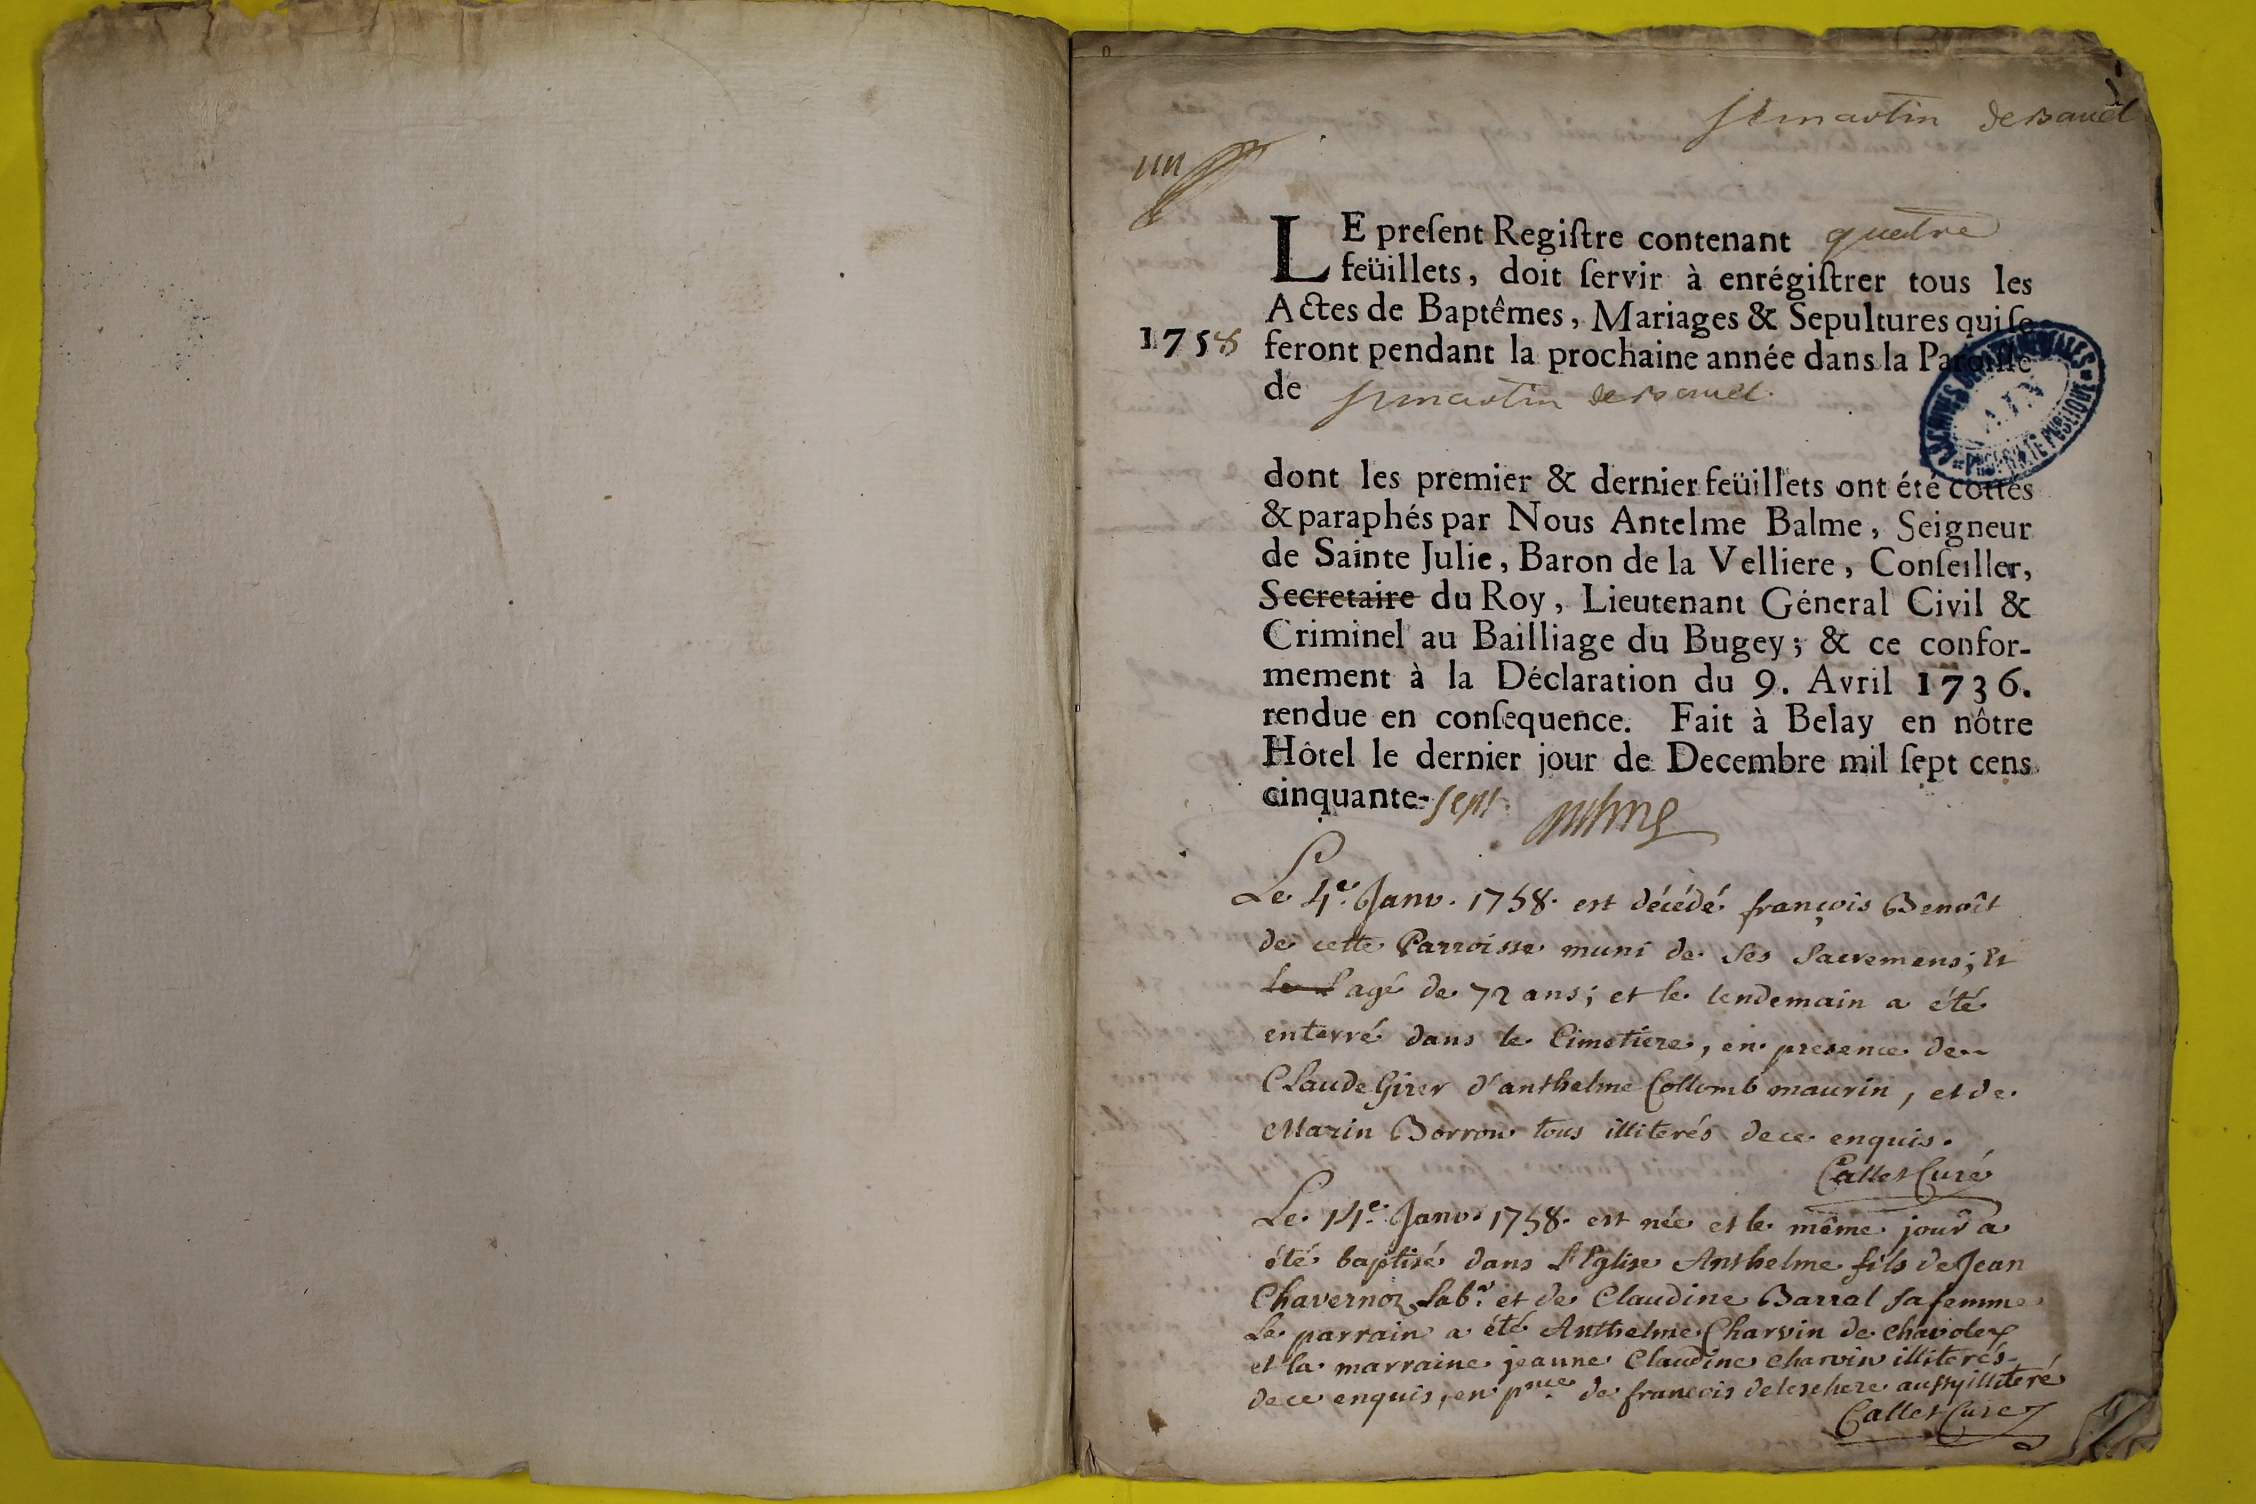 st martin de bavel
un
LE preſent Regiſtre contenant quatre
feüillets, doit ſervir à enrégiſtrer tous les
Actes de Baptêmes, Mariages & Sepultures qui ſe
1758 feront pendant la prochaine année dans la Paroiſſe
de st martin de bavel.
ARCHIVES DEPARTEMENTALES * AIN * PROPRIETE PUBLIQUE *
dont les premier & dernier feüillets ont été cottés
& paraphés par Nous Antelme Balme, Seigneur
de Sainte Julie, Baron de la Velliere, Conſeiller,
Secretaire du Roy, Lieutenant Géneral Civil &
Criminel au Bailliage du Bugey; & ce confor-
mement à la Déclaration du 9. Avril 1736.
rendue en conſequence. Fait à Belay en nôtre
Hôtel le dernier jour de Decembre mil ſept cens
cinquante-sept. Balme
Le 4e. Janv. 1758. est décédé françois Benoît
de cette Parroisse muni de ses sacremens; Et
agé de 72 ans; et le lendemain a été
enterré dans le Cimetiere, en presence de
Claude Girer d'anthelme Collomb maurin, et de
Marin Borron tous illiterés de ce enquis.
Callet Curé
Le 14e. Janv. 1758. est née et le même jour a
été baptisé dans l'Eglise Anthelme fils de Jean
Chavernoz Labr. et de Claudine Barral sa femme
Le parrain a été Anthelme Charvin de chavoley
et la marraine jeanne Claudine charvin illiterés
de ce enquis, en pnce de francois deleschere aussy illiteré
Callet Curé